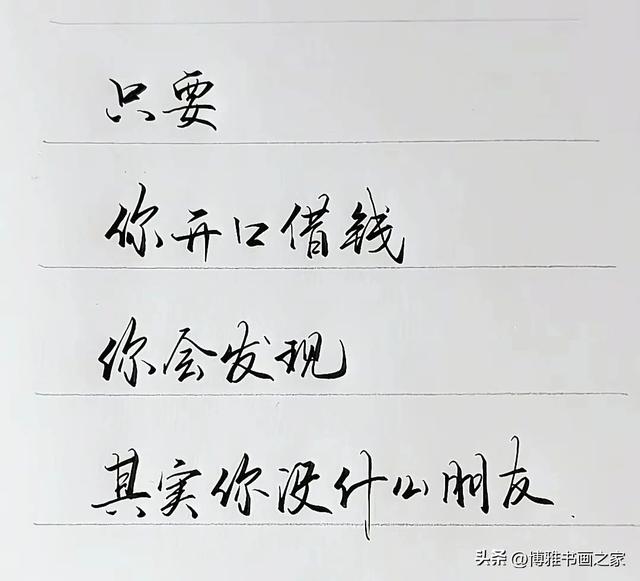 只要
你开口借钱
你会发现
其实你没什么朋友
头条 @博雅书画之家